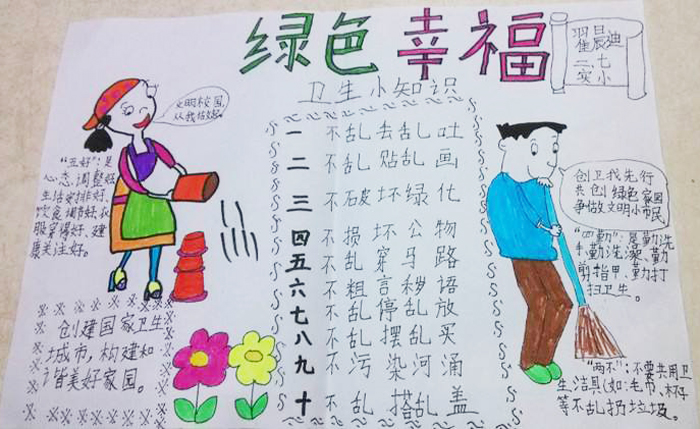 绿色幸福
翟晨迪
二七
实小
卫生小知识
文明校园,
从我做起。
一 不乱去乱吐
二 不乱贴乱画
三 不破坏绿化
四 不损坏公物
五 不乱穿马路
六 不粗言秽语
七 不乱停乱放
八 不乱摆乱买
九 不污染河涌
十 不乱搭乱盖
“五好”:是
心态调整好
生活安排好、
饮食调节好、衣
服穿得好、健
康关注好。
创建国家卫生
城市,构建和
谐美好家园。
创卫我先行
共创绿色家园
争做文明小市民
“四勤”:是勤洗
手勤洗澡、勤
剪指甲、勤打
扫卫生。
“两不”:不要共用卫
生洁具(如:毛巾,杯子
等不乱扔垃圾。